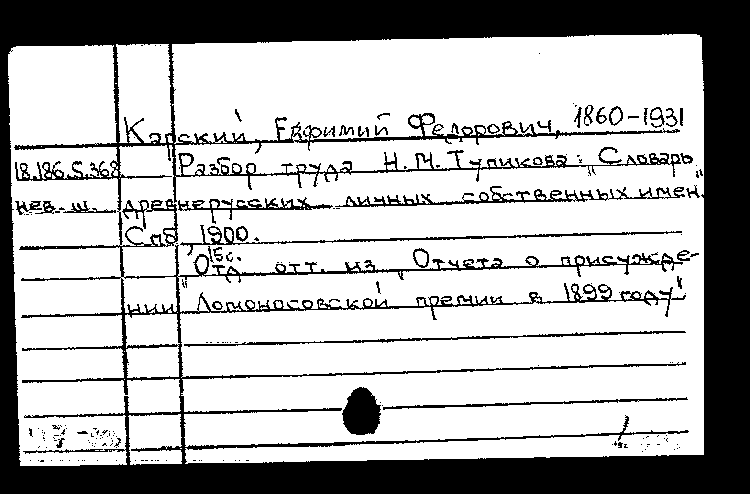 Карский, Евфимий Федорович, 1860-1931
18.186.5.368 Разбор труда Н.М. Тупикова: „Словарь
нев. ш. древнерусских личных собственных имен."
Спб, 1900.
15с.
Отд. отт. из „Отчета о присужде-
нии Ломоносовской премии в 1899 году"